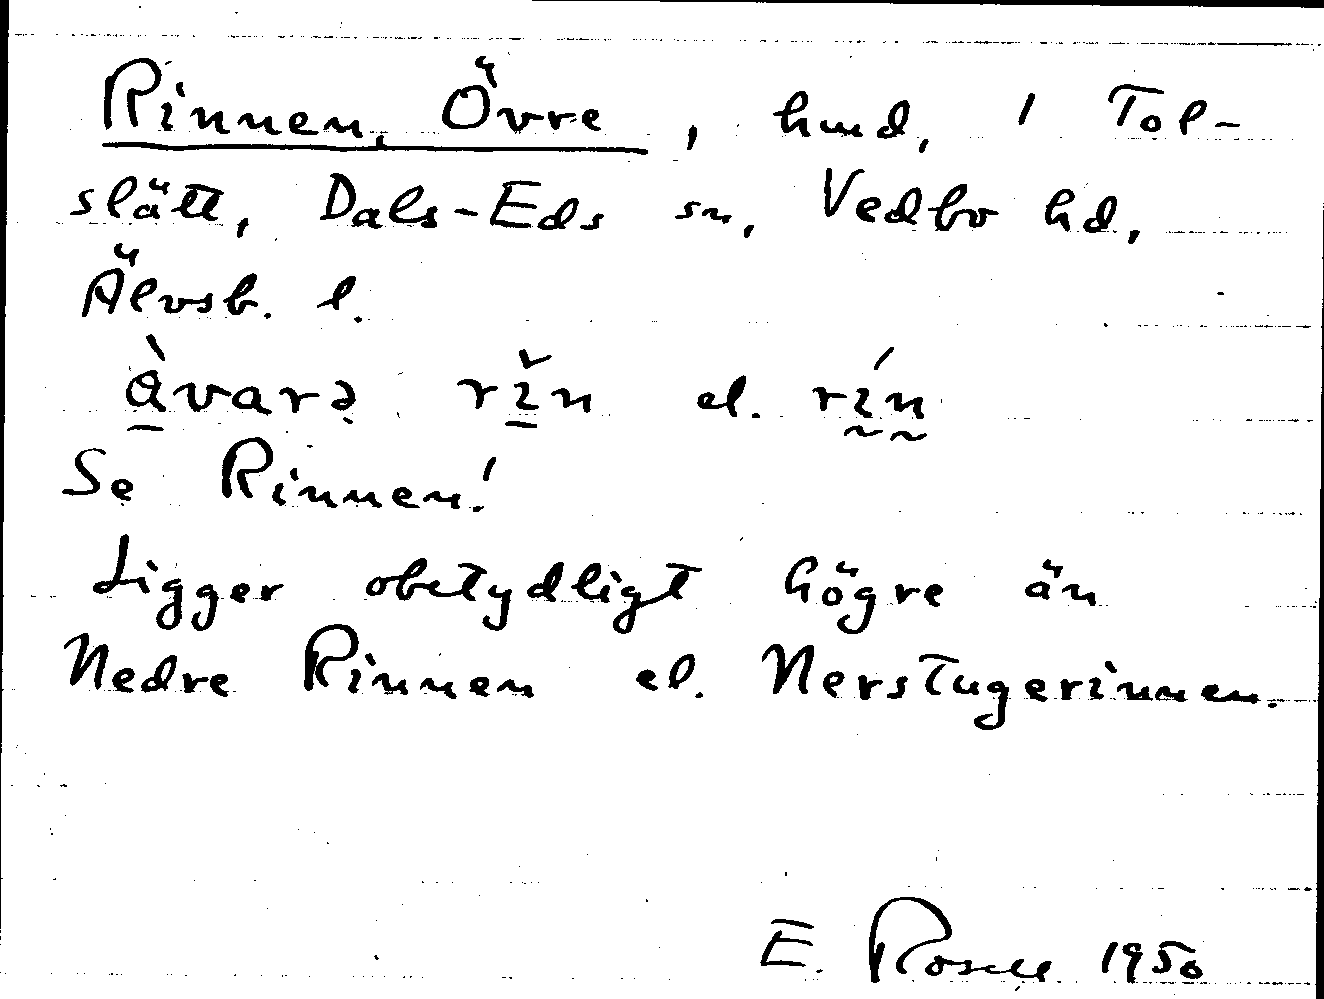 Rinnen, Övre, hmd, 1 Tol-
slätt, Dals-Eds sn, Vedbo hd,
Älvsb. l.
àvarə rǐn el. rín
Se Rinnen!
Ligger obetydligt högre än
Nedre Rinnen el. Nerstugerinnen.
E. Rosell 1950